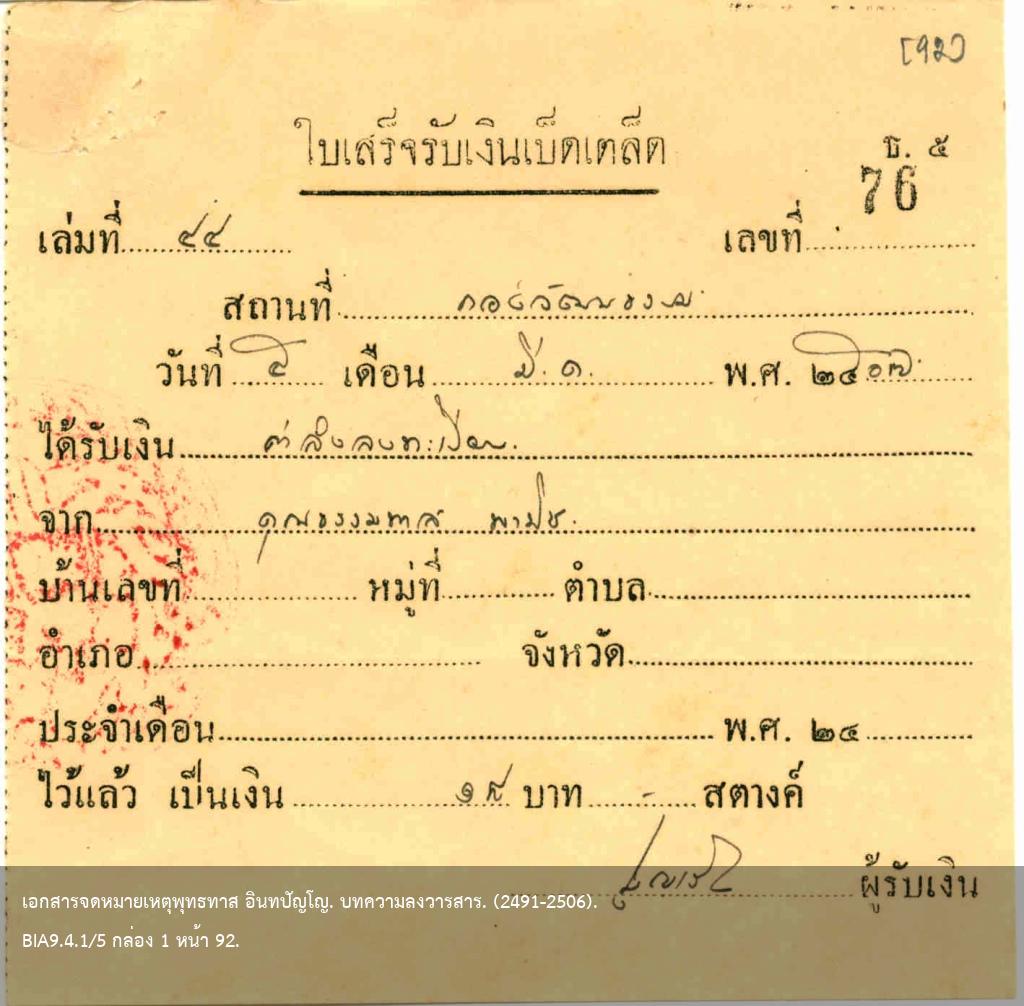 [92]
ใบเสร็จรับเงินเบ็ดเตล็ด
ธ. ๕
76
เล่มที่ ๔๔ เลขที่
สถานที่ กองวัฒนธรรม
วันที่ ๕ เดือน มี.ค. พ.ศ. ๒๔
ได้รับเงิน ค่าส่งลงทะเบียน
จาก คุณธรรมทาส พานิช
บ้านเลขที่ หมู่ที่ ตำบล
อำเภอ จังหวัด
ประจำเดือน พ.ศ. ๒๔
ไว้แล้ว เป็นเงิน ๑๙ บาท - สตางค์
ผู้รับเงิน
เอกสารจดหมายเหตุพุทธทาส อินทปัญโญ. บทความลงวารสาร. (2491-2506).
BIA9.4.1/5 กล่อง 1 หน้า 92.